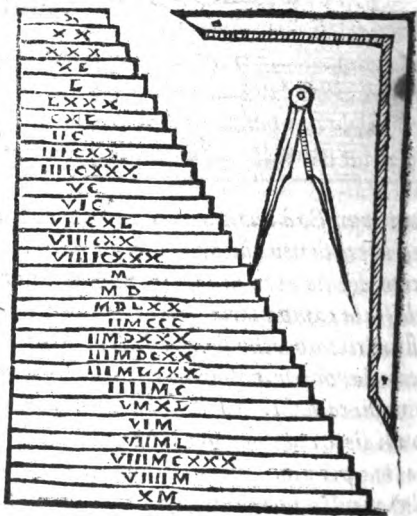 X
XX
XXX
XL
L
LXXX
CXL
IIC
IIICXX
IIIICXXX
VC
VIC
VIICXL
VIIICXX
VIIIICXXX
M
MD
MDLXX
IIMCCC
IIIMDXXX
IIIMDCXX
IIIMLXXX
IIIIMC
VMXL
VIM
VIIML
VIIIMCXXX
VIIIIM
XM